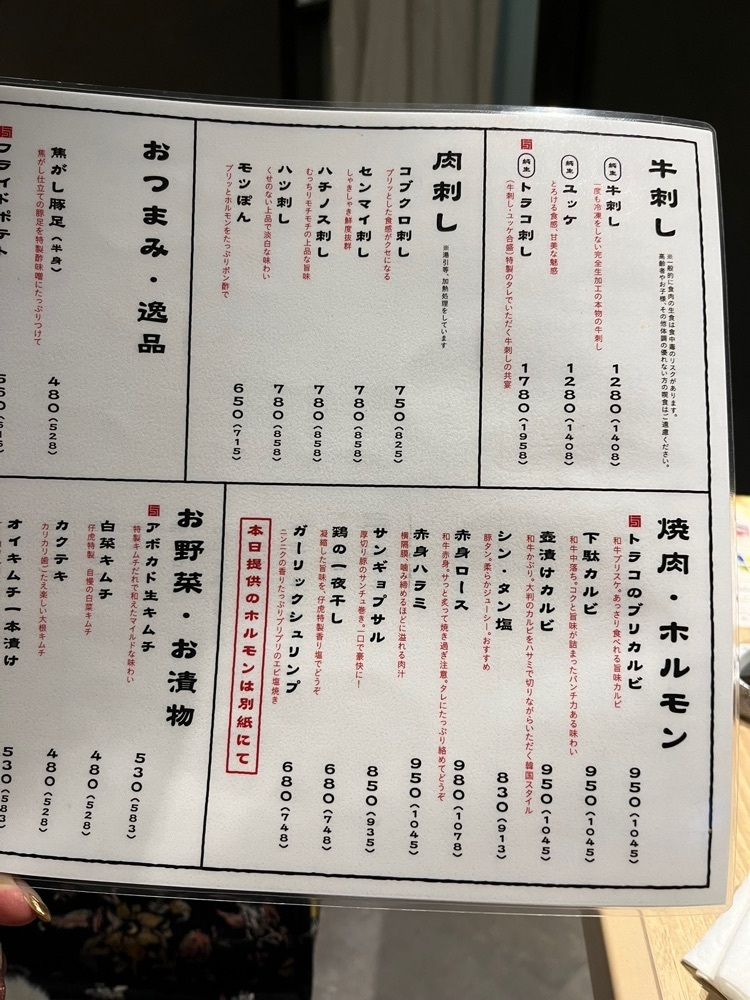 牛刺し
※一般的に食肉の生食は食中毒のリスクがあります。
高齢者やお子様、その他体調の優れない方の喫食はご遠慮ください。
純生 牛刺し 1280(1408)
一度も冷凍をしない完全生加工の本物の牛刺し
純生 ユッケ 1280(1408)
とろける食感、甘美な魅惑
純生 トラコ刺し 1780(1958)
(牛刺し・ユッケ合盛)特製のタレでいただく牛刺しの共宴
肉刺し
※湯引等、加熱処理をしています
コブクロ刺し 750(825)
プリッとした食感がクセになる
センマイ刺し 780(858)
しゃきしゃき鮮度抜群
ハチノス刺し 780(858)
むっちりモチモチの上品な旨味
ハツ刺し 780(858)
くせのない上品で淡白な味わい
モツぽん 650(715)
プリッとホルモンをたっぷりポン酢で
おつまみ・逸品
焦がし豚足(半身) 480(528)
焦がし仕立ての豚足を特製酢味噌にたっぷりつけて
フライドポテト
焼肉・ホルモン
トラコのブリカルビ 950(1045)
和牛ブリスケ。あっさり食べれる旨味カルビ
下駄カルビ 950(1045)
和牛中落ち。コクと旨味が詰まったパンチ力ある味わい
壺漬けカルビ 950(1045)
和牛かぶり。大判のカルビをハサミで切りながらいただく韓国スタイル
シン・タン塩 830(913)
豚タン。柔らかジューシー。おすすめ
赤身ロース 980(1078)
和牛赤身。サっと炙って焼き過ぎ注意。タレにたっぷり絡めてどうぞ
赤身ハラミ 950(1045)
横隔膜。噛み締めるほどに溢れる肉汁
サンギョプサル 850(935)
厚切り豚のサンチュ巻き。一口で豪快に!
鶏の一夜干し 680(748)
凝縮した旨味を、仔虎特製香り塩でどうぞ
ガーリックシュリンプ 680(748)
ニンニクの香りたっぷりプリプリのエビ塩焼き
本日提供のホルモンは別紙にて
お野菜・お漬物
アボカド生キムチ 530(583)
特製キムチだれで和えたマイルドな味わい
白菜キムチ 480(528)
仔虎特製 自慢の白菜キムチ
カクテキ 480(528)
カリカリ歯ごたえ楽しい大根キムチ
オイキムチ一本漬け 530(583)